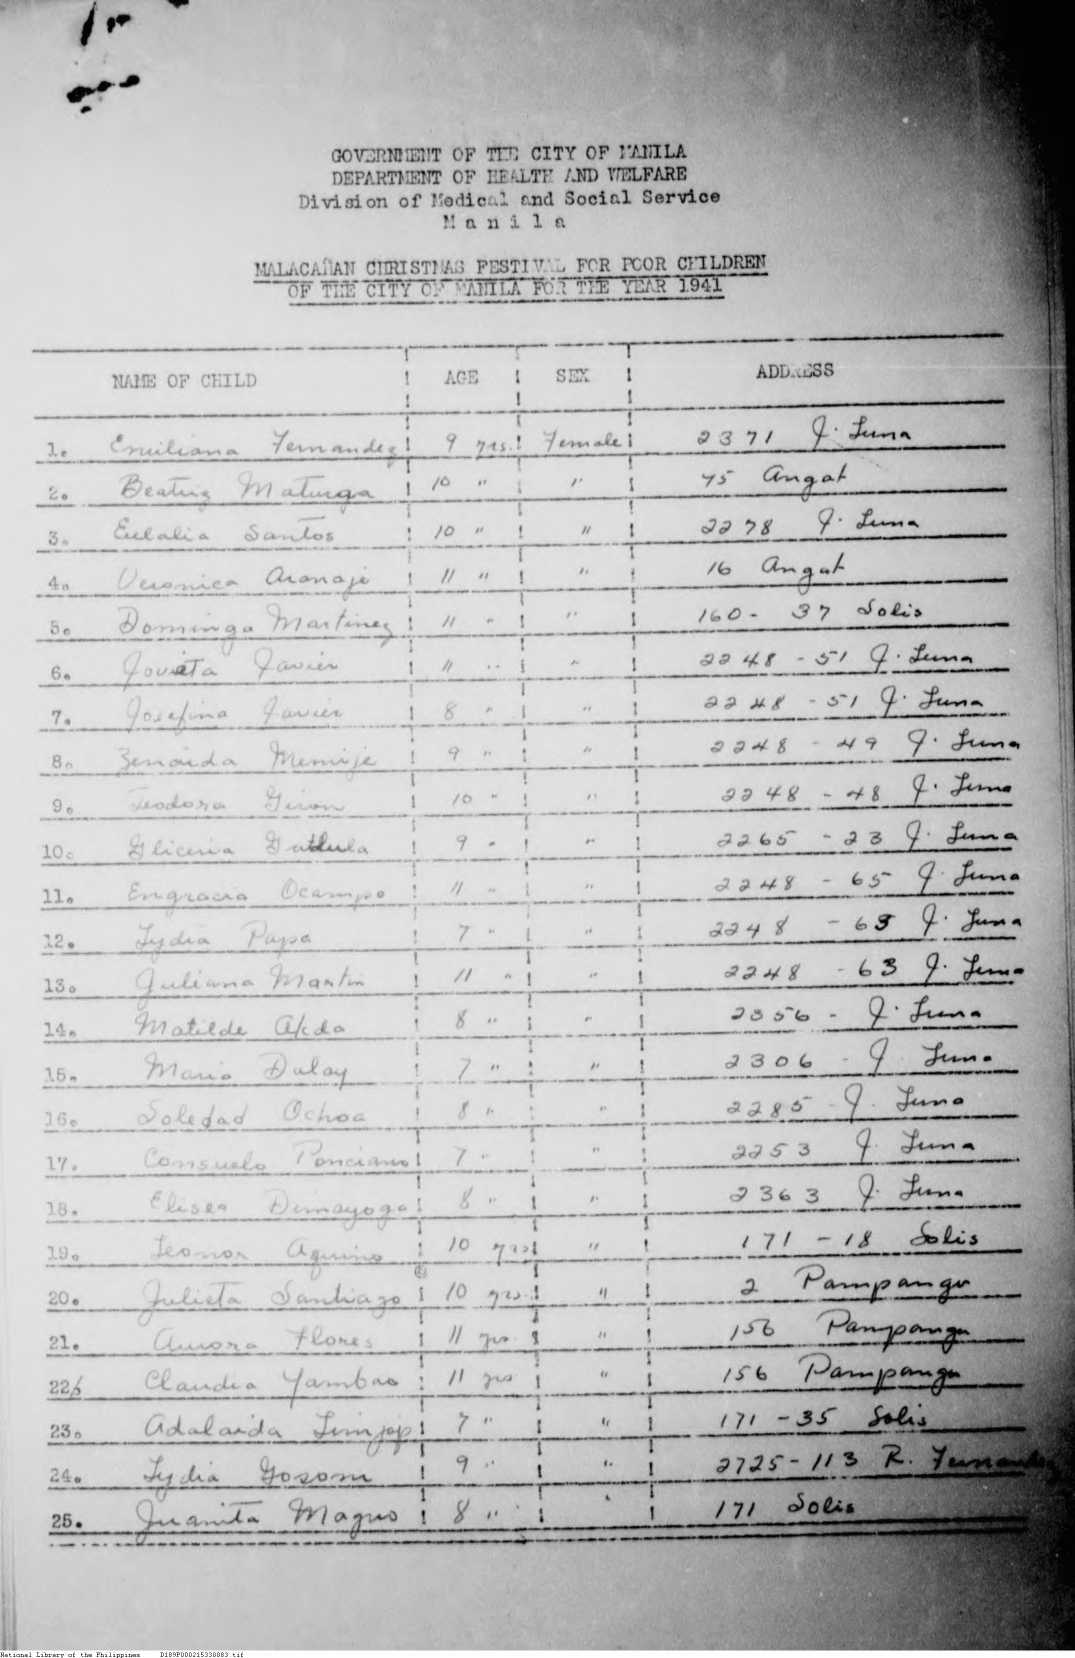 GOVERNMENT OF THE CITY OF MANILA
DEPARTMENT OF HEALTH AND WELFARE
Division of Medical and Social Service
M a n i l a
MALACAÑAN CHRISTMAS FESTIVAL FOR POOR CHILDREN
OF THE CITY OF MANILA FOR THE YEAR 1941
NAME OF CHILD AGE SEX ADDRESS
1. Emiliana Fernandez 9 yrs. Female 2371 J. Luna
2. Beatriz Maturga 10 " " 75 Angat
3. Eulalia Santos 10 " " 2278 J. Luna
4. Veronica Aranaje 11 " " 16 Angat
5. Dominga Martinez 11 " " 160- 37 Solis
6. Jovita Javier 11 " " 2248-51 J. Luna
7. Josefina Javier 8 " " 2248-51 J. Luna
8. Zenaida Menije 9 " " 2248-49 J. Luna
9. Teodora Giron 10 " " 2248-48 J. Luna
10. Gliceria 9 " " 2265-23 J. Luna
11. Engracia Ocampo 11 " " 2248-65 J. Luna
12. Lydia Papa 7 " " 2248-63 J. Luna
13. Juliana Martin 11 " " 2248-63 J. Luna
14. Matilde 8 " " 2356- J. Luna
15. Maria Dulay 7 " " 2306- J. Luna
16. Soledad Ochoa 8 " " 2285-J. Luna
17. Consuelo Ponciano 7 " " 2253 J. Luna
18. Elisea Dimayoga 8 " " 2363 J. Luna
19. Leonor Aquino 10 yrs " 171-18 Solis
20. Julieta Santiago 10 yrs. " 2 Pampanga
21. Aurora Flores 11 yrs. " 156 Pampanga
22. Claudia Yambao 11 yrs " 156 Pampanga
23. Adalaida Limjap 7 " " 171-35 Solis
24. Lydia Gosom 9 " " 2725-113 R. Fernandez
25. Juanita Magno 8 " 171 Solis
National Library of the Philippines D189P000215338883.tif